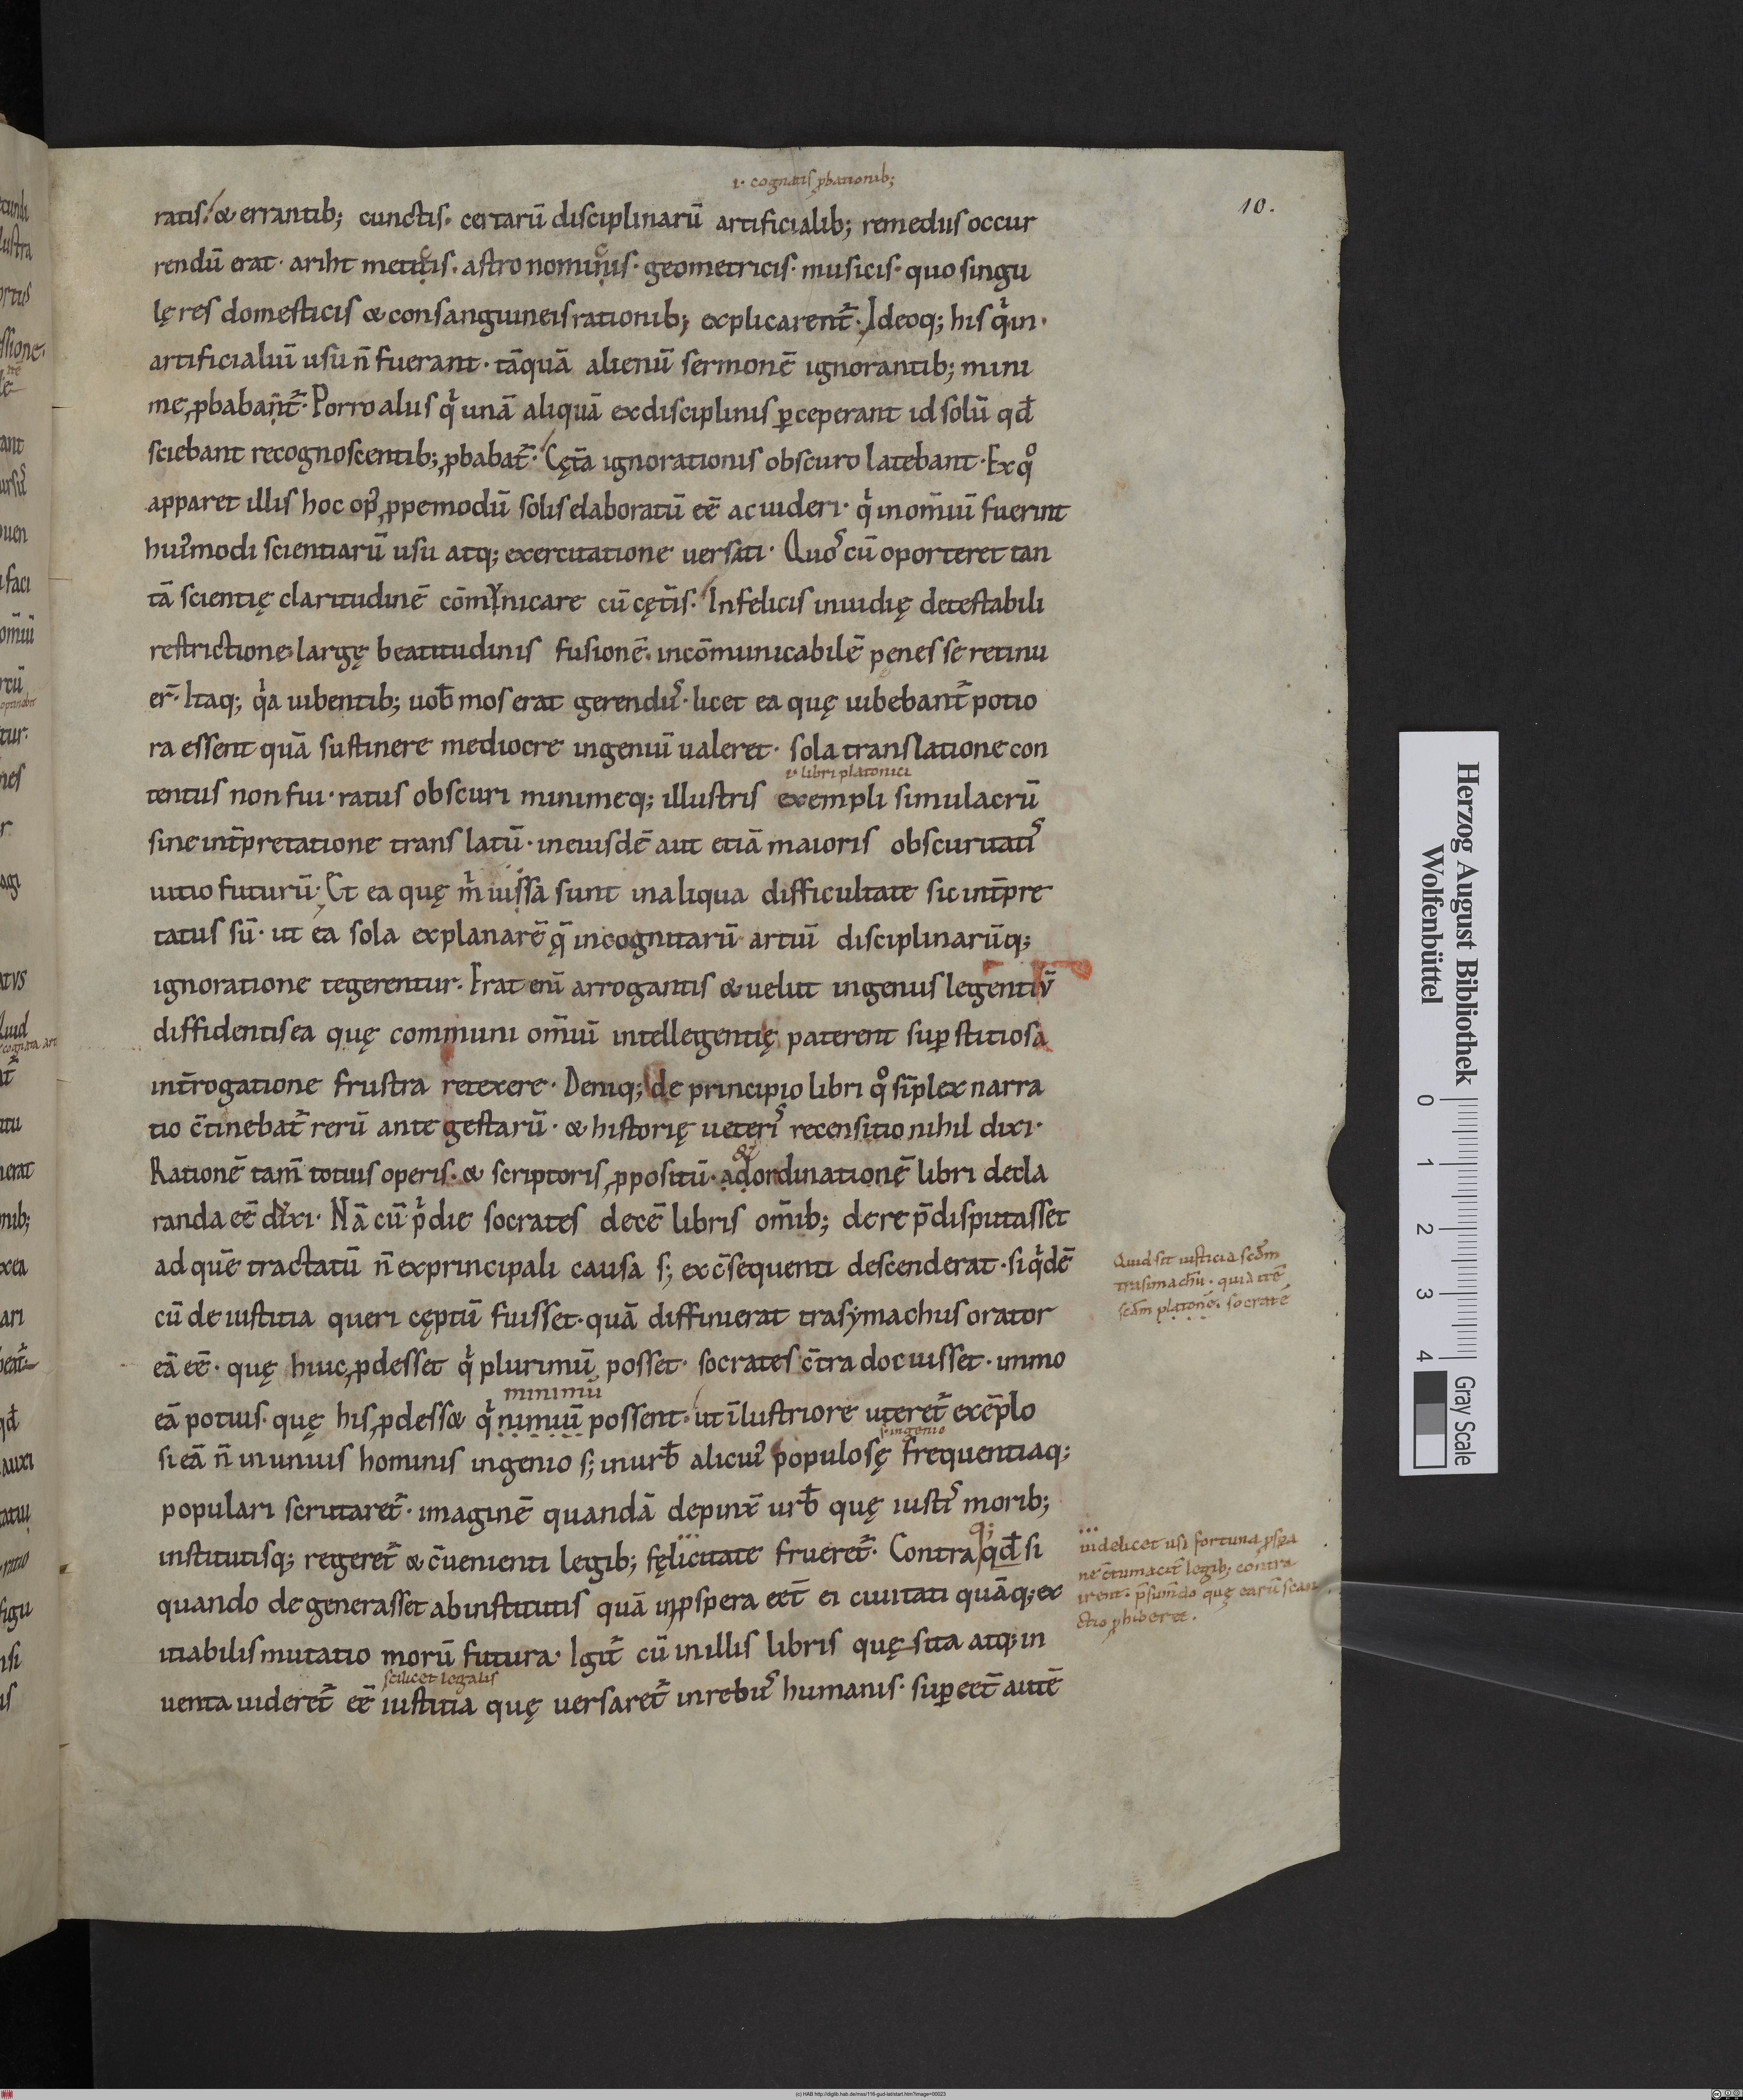 .i. cognatis ꝓbationib;
10.
ratis. & errantib; cunctis. certarū disciplinarū artificialib; remediis occur
rendū erat. ariht meticis. astro nomicis. geometricis. musicis. quo singu
lę res domesticis & consanguineis rationib; explicarent᷑. Ideoq; his qͥ in
artificialiū usu n̄ fuerant. tāquā alienū sermonē ignorantib; mini
me ꝓbabant᷑. Porro aliis qͥ unā aliquā ex disciplinis ꝑceperant id solū qd̄
sciebant recognoscentib; ꝓbabat᷑. Cęt̄a ignorationis obscuro latebant. Ex qͦ
apparet illis hoc opꝰ ꝓpemodū solis elaboratū eē ac uideri. qͥ in om̄iū fuerint
huiꝰmodi scientiarū usu atq; exercitatione uersati. Quos cū oporteret tan
tā scientię claritudinē cōmunicare cū cęt̄is. Infelicis inuidię detestabili
restrictione. largę beatitudinis fusionē. incōmunicabilē penes se retinu
er̄. Itaq; qͣa iubentib; uob̄ mos erat gerendus. licet ea quę iubebant᷑ potio
ra essent quā sustinere mediocre ingeniū ualeret. sola translatione con
.i. libri platonici
tentus non fui. ratus obscuri minimeq; illustris exempli simulacrū
sine int̄pretatione trans latū. in eiusdē aut etiā maioris obscuritatis
uitio futurū. Et ea quę mͥ iussa sunt in aliqua difficultate sic int̄pre
tatus sū. ut ea sola explanarē q̄ incognitarū artiū disciplinarūq;
ignoratione tegerentur. Erat enī arrogantis & uelut ingeniis legentiū
diffidentis ea quę communi om̄iū intellegentię paterent suꝑstitiosa
int̄rogatione frustra retexere. Deniq; de principio libri qͦ sīplex narra
tio c̄tinebat᷑ rerū ante gestarū. & historię ueteris recensitio nihil dixi.
&
Rationē tam̄ totius operis. & scriptoris ꝓpositū. ad ordinationē libri decla
randa eē dixi. Nā cū pͥdie socrates decē libris om̄ib; de re p̄ disputasset
ad quē tractatū n̄ ex principali causa s; ex c̄sequenti descenderat. siqͥdē
cū de iustitia queri cęptū fuisset. quā diffinierat trasymachus orator
eā eē. quę huic ꝓdesset qͥ plurimū posset. socrates c̄tra docuisset. immo
minimū
eā potius. quę his ꝓdess& qͥ nimiū possent. ut īlustriore uteret᷑ exēplo
s. ingenio
si eā n̄ in unius hominis ingenio s; in urb̄ alicuiꝰ populosę frequentiaq;
populari scrutaret᷑. imaginē quandā depinx̄ urb̄ quę iustis morib;
institutisq; regeret᷑ & c̄uenienti legib; fęlicitate frueret᷑. Contra qd̄ si
quando de generasset ab institutis quā inꝓspera eēt ei ciuitati quāq; ex
itiabilis mutatio morū futura. Igit᷑ cū in illis libris quęsita atq; in
scilicet legalis
uenta uideret᷑ eē iustitia quę uersaret᷑ in rebus humanis. suꝑeēt autē
Quid sit iusticia scd̄m
trasimachū. quid itē
scd̄m platonē. socratē
uidelicet usi fortuna ꝓspa
legib; contra
quę earū san
ctio ꝓhiberet.
Herzog August Bibliothek
Wolfenbüttel
0 1 2 3 4
Gray Scale
(c) HAB http://diglib.hab.de/mss/116-gud-lat/start.htm?image=00023